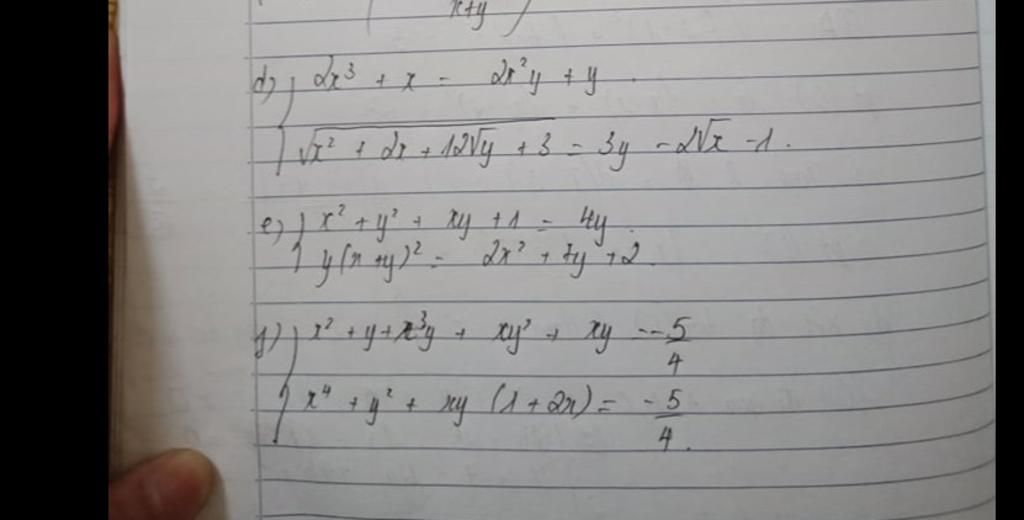 x+y
d) 2x³ + x = 2x²y + y.
√x² + 2x + 12√y + 3 = 3y - 2√x - 1.
e) x² + y² + xy + 1 = 4y.
y(x+y)² = 2x² + 7y + 2.
f) x² + y + x³y + xy² + xy = -5/4
x⁴ + y² + xy (1 + 2x) = -5/4.